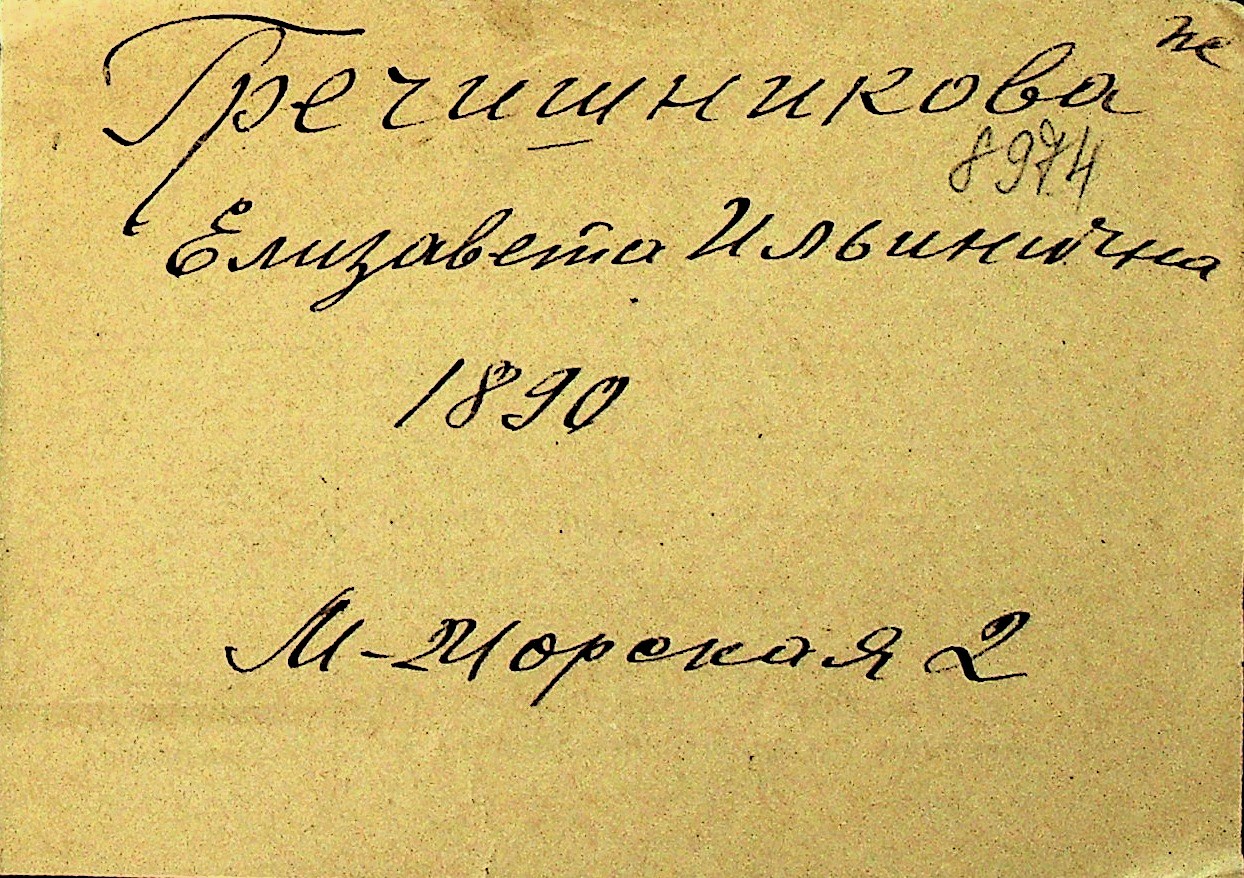 Гречишникова
8974
Елизавета Ильинична
1890
М-Морская 2